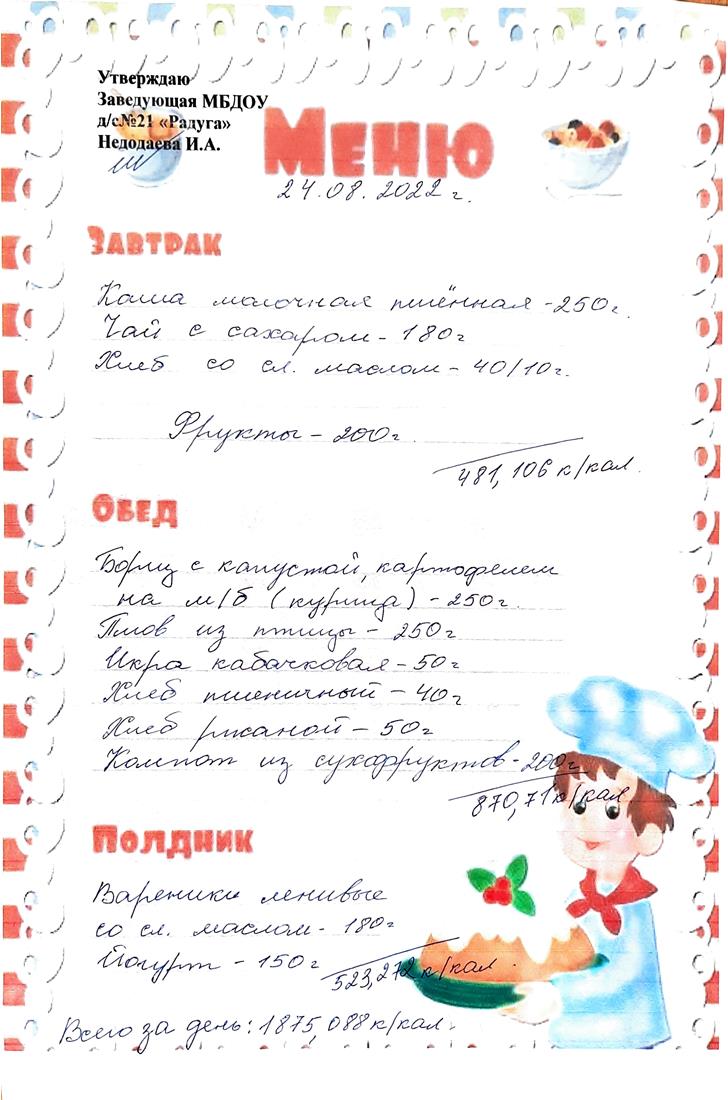 Утверждаю
Заведующая МБДОУ
д/с№21 «Радуга»
Недодаева И.А.
Меню
24.08.2022 г.
Завтрак
Каша молочная пшённая - 250г.
Чай с сахаром - 180г
Хлеб со сл. маслом - 40/10г.
Фрукты - 200г.
481,106 к/кал.
Обед
Борщ с капустой, картофелем
на м/б (курица) - 250г.
Плов из птицы - 250г
Икра кабачковая - 50г
Хлеб пшеничный - 40г
Хлеб ржаной - 50г
Компот из сухофруктов - 200г
870,71 к/кал
Полдник
Вареники ленивые
со сл. маслом - 180г
Йогурт - 150г
523,272 к/кал.
Всего за день: 1875,088 к/кал.